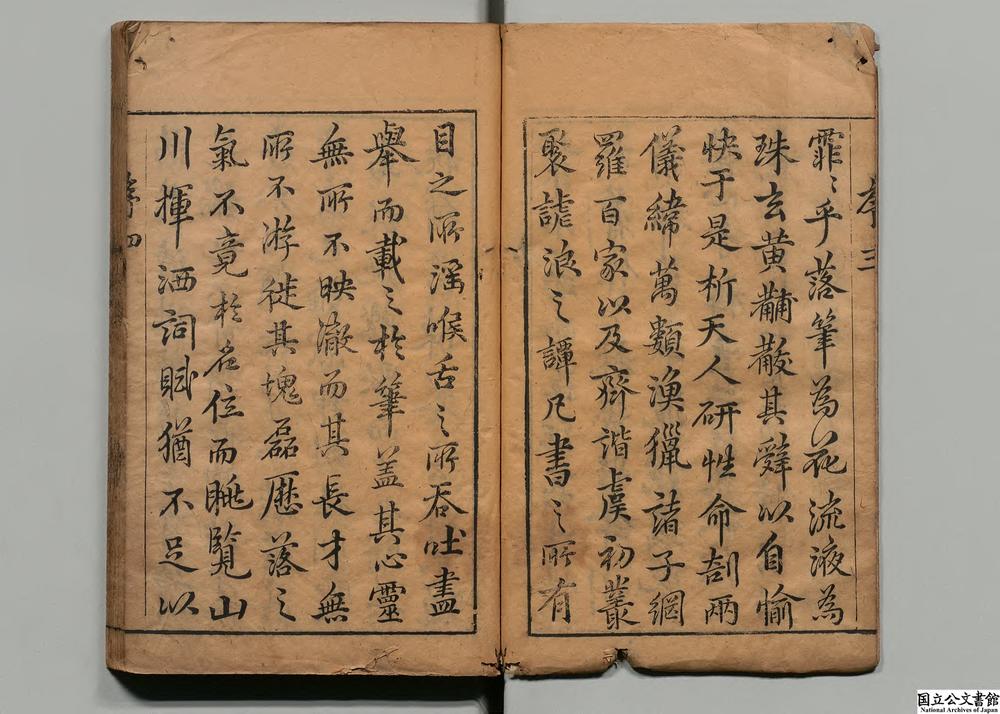 霏〻乎落筆為花流液為
珠玄黄黼黻其辭以自愉
快于是析天人研性命剖兩
儀緯萬類漁獵諸子網
羅百家以及齊諧虞初叢
聚謔浪之譚凡書之所有
序三
目之所溜喉舌之所吞吐盡
舉而載之於筆蓋其心靈
無所不映澈而其長才無
所不游徙其塊磊歷落之
氣不竟於名位而眺覽山
川揮洒詞賦猶不足以
序四
国立公文書館
National Archives of Japan